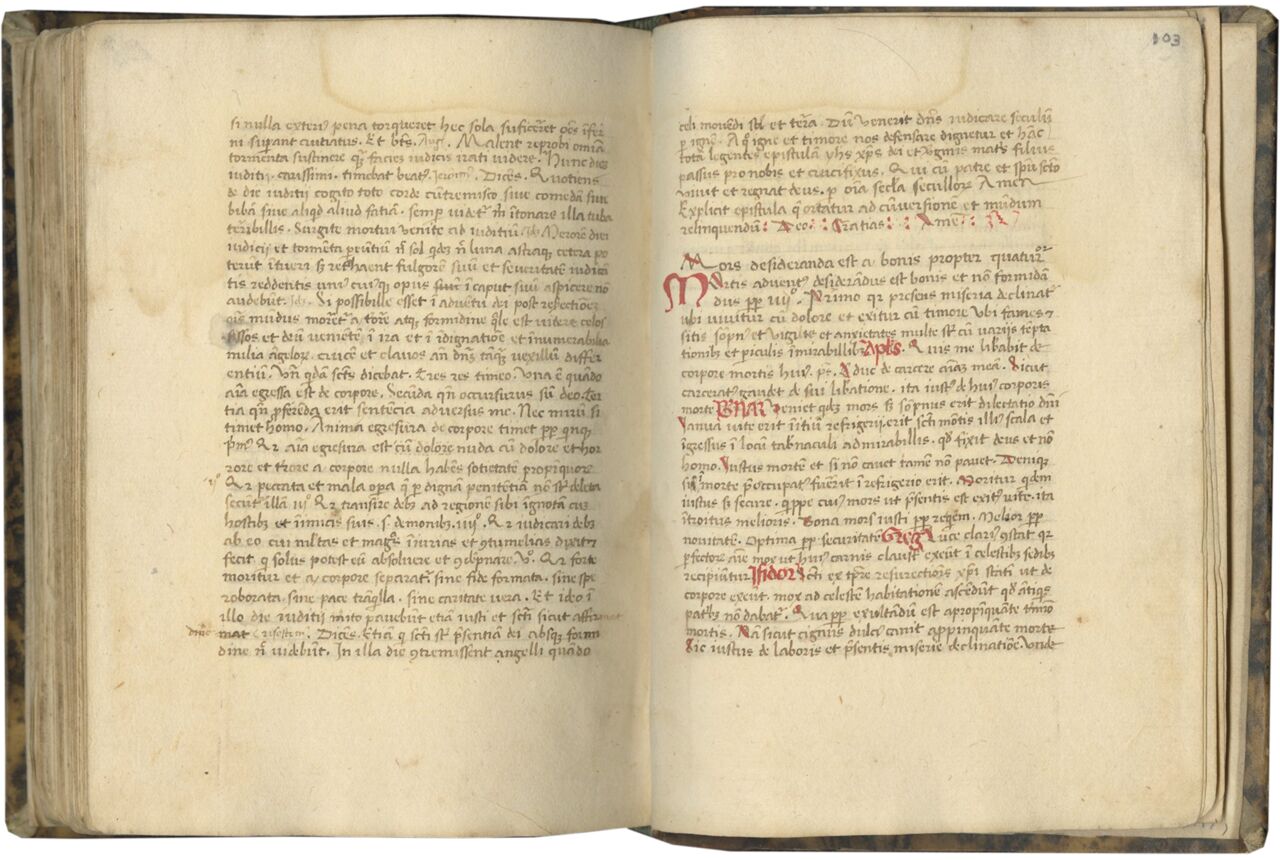 si nulla exteriꝰ pena torqueret hec sola sufficeret oēs īfer
ni suꝑant cruciatus. Et bt̄s. Augꝰ. Malent reprobi omnia
tormenta sustinere qꝫ faciē iudicis irati videre. Hunc diē
iuditij. carissimi. timebat beatꝰ. Jeronimꝰ. Dicēs. Quotiens
de die iuditij cogito toto corde cōtremisco siue comedā siue
bibā siue aliqd aliud fatiā. semꝑ videtr̄ m̄ ītonare illa tuba
terribillis. Surgite mortui venite ad iuditiū. Merore diei
iudicij et tormēta
terut ītueri sꝫ retrhaent fulgorē suū et seueritatē iudicis
tis reddentis uni cuiqꝫ opus suū ī caput suū aspicere nō
audebūt. Si possibille esset ī advētu dei post resrectionē
oīs mūdus moretr̄ a tōre atqꝫ formidine qͣle est videre celos
fissos et deū venietē ī ira et ī idignatiōe et innumerabilia
milia āgelorꝝ. crucē et clavos an̄ dn̄s tāqꝫ vexillū differ
entiū. Vn̄ qdā sct̄s dicebat. Tres res timeo. Una ē quādo
aīa egressa est de corpore. Secūda qn̄ occursurus sū deo. Ter
tia qn̄ ꝓferēda erit sentēcia adversus me. Nec mirū si
timet homo. Anima egresura de corpore timet ꝓꝑ qnqꝫ
pͥmꝰ Qr aīa egresura est cū dolore nuda cū dolore et hor
rore et tr̄ore a corpore nulla habēs sotietatē propīquorꝝ
ijͦ Qr peccata et mala oꝑa q̄ ꝑ dignā penitētiā nō st̄ deleta
secūt̄ illā iijͦ Qr transire debꝫ ad regionē sibi ignotā cū
hostibꝫ et īimicis suis. s. demonibꝫ. iiijͦ. Qr iudicari debꝫ
ab eo cui m̄ltas et magͣs īiurias et ꝯtumelias dixit
fecit q̄ solus potest eū absolvere et ꝯdēpnare. vͦ. Qr forte
moritur et a corpore separatr̄ sine fide formata. sine spe
roborata. sine pace trāqlla. sine caritate vera. Et ideo ī
illo die iuditij m̄ito pavebūt etiā iusti et sct̄i sicut affir
mat crisostim. Dicēs. Etiā q̄ sct̄i st̄ p̄sentiā dei absqꝫ formi
dine n̄ videbūt. In illa die ꝯtremissent angelli quādo
103
celi movēdi st̄ et terra. Dū venerit dn̄s iudicare seculū
ꝑ ignē. A qͦ igne et timore nos defensare dignetur et hāc
totā legentes epistulā yhs xp̄s dei et v̄ginis mat̄s filius
passus pro nobis et crucifixus. Qui cū patre et spū sctō
vivit et regnat deus. ꝑ oīa secl̄a secullorꝝ Amen
Explicit epistula q̄ ortatur ad cōversionē et mūdum
relinquendū : Deo : Gratias : Ame :
Mors desideranda est a bonis propter quatuor
Mortis adventꝰ desiderādus est bonis et nō formidā
dus ꝓꝑ iiijͦ. Primo qr presens miseria declinatr̄
ubi vivitur cū dolore et exitur cū timore ubi fames ⁊
sitis sōpnꝰ et vigilie et anxietates multe st̄ cū varijs tēpta
tionibꝫ et piculis īmirabillibꝫ Apl̄s. Quis me lib̄abit de
corpore mortis huiꝰ. ps̄. Aduc de carcere aīaꝫ meā. Sicut
carceratꝰ gaudet de sui lib̄atione. ita iustꝰ de huiꝰ corporis
morte B̄nar̄ veniet qdeꝫ mors sꝫ sōpnus erit dilectatio dn̄i
Ianua vite erit ītiū refrigerij. erit sct̄i mōtis illiꝰ scala et
īgressus ī locū tab̄naculi admirabillis. qd̄ fixit deus et nō
homo. Iustus mortē et si nō cavet tamē nō pavet. Deniqꝫ
si morte p̄occupatꝰ fuerit ī refrigerio erit. Moritur qdem
iustus sꝫ secure. quippe cuiꝰ mors ut p̄sentis est exitꝰ vite. ita
ītroitus melioris. Bona mors iusti ꝓꝑ reqem. Melior ꝓꝑ
novitatē. Optima ꝓꝑ securitatē Greg Luce clariꝰ ꝯstat qr
ꝑfectorꝝ aīe mox ut huiꝰ carnis claustrꝝ exeūt ī celestibꝫ sedibꝫ
recipiūtur. Isidorꝰ Scti ex tp̄re resurectiōis xp̄i statī ut de
corpore exeūt. mox ad celestē habitationē ascēdūt qd̄ ātiqis
patibꝫ nō dabatr̄. Quaꝓꝑ exultādū est apropīquāte timio
mortis. Nā sicut cignus dulciꝰ canit appropinquāte morte
Sic iustus de laboris et p̄sentis miserie declinatiōe. Unde